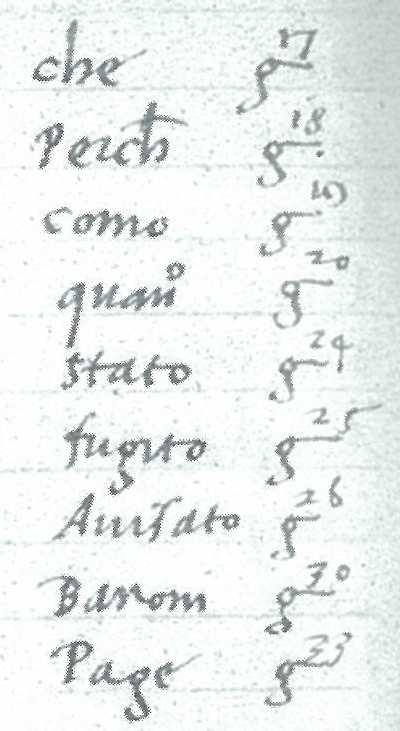 che g17
Perch g18
como g19
quan° g20
stato g24
fugito g25
Auisato g26
Baroni g30
Page g33